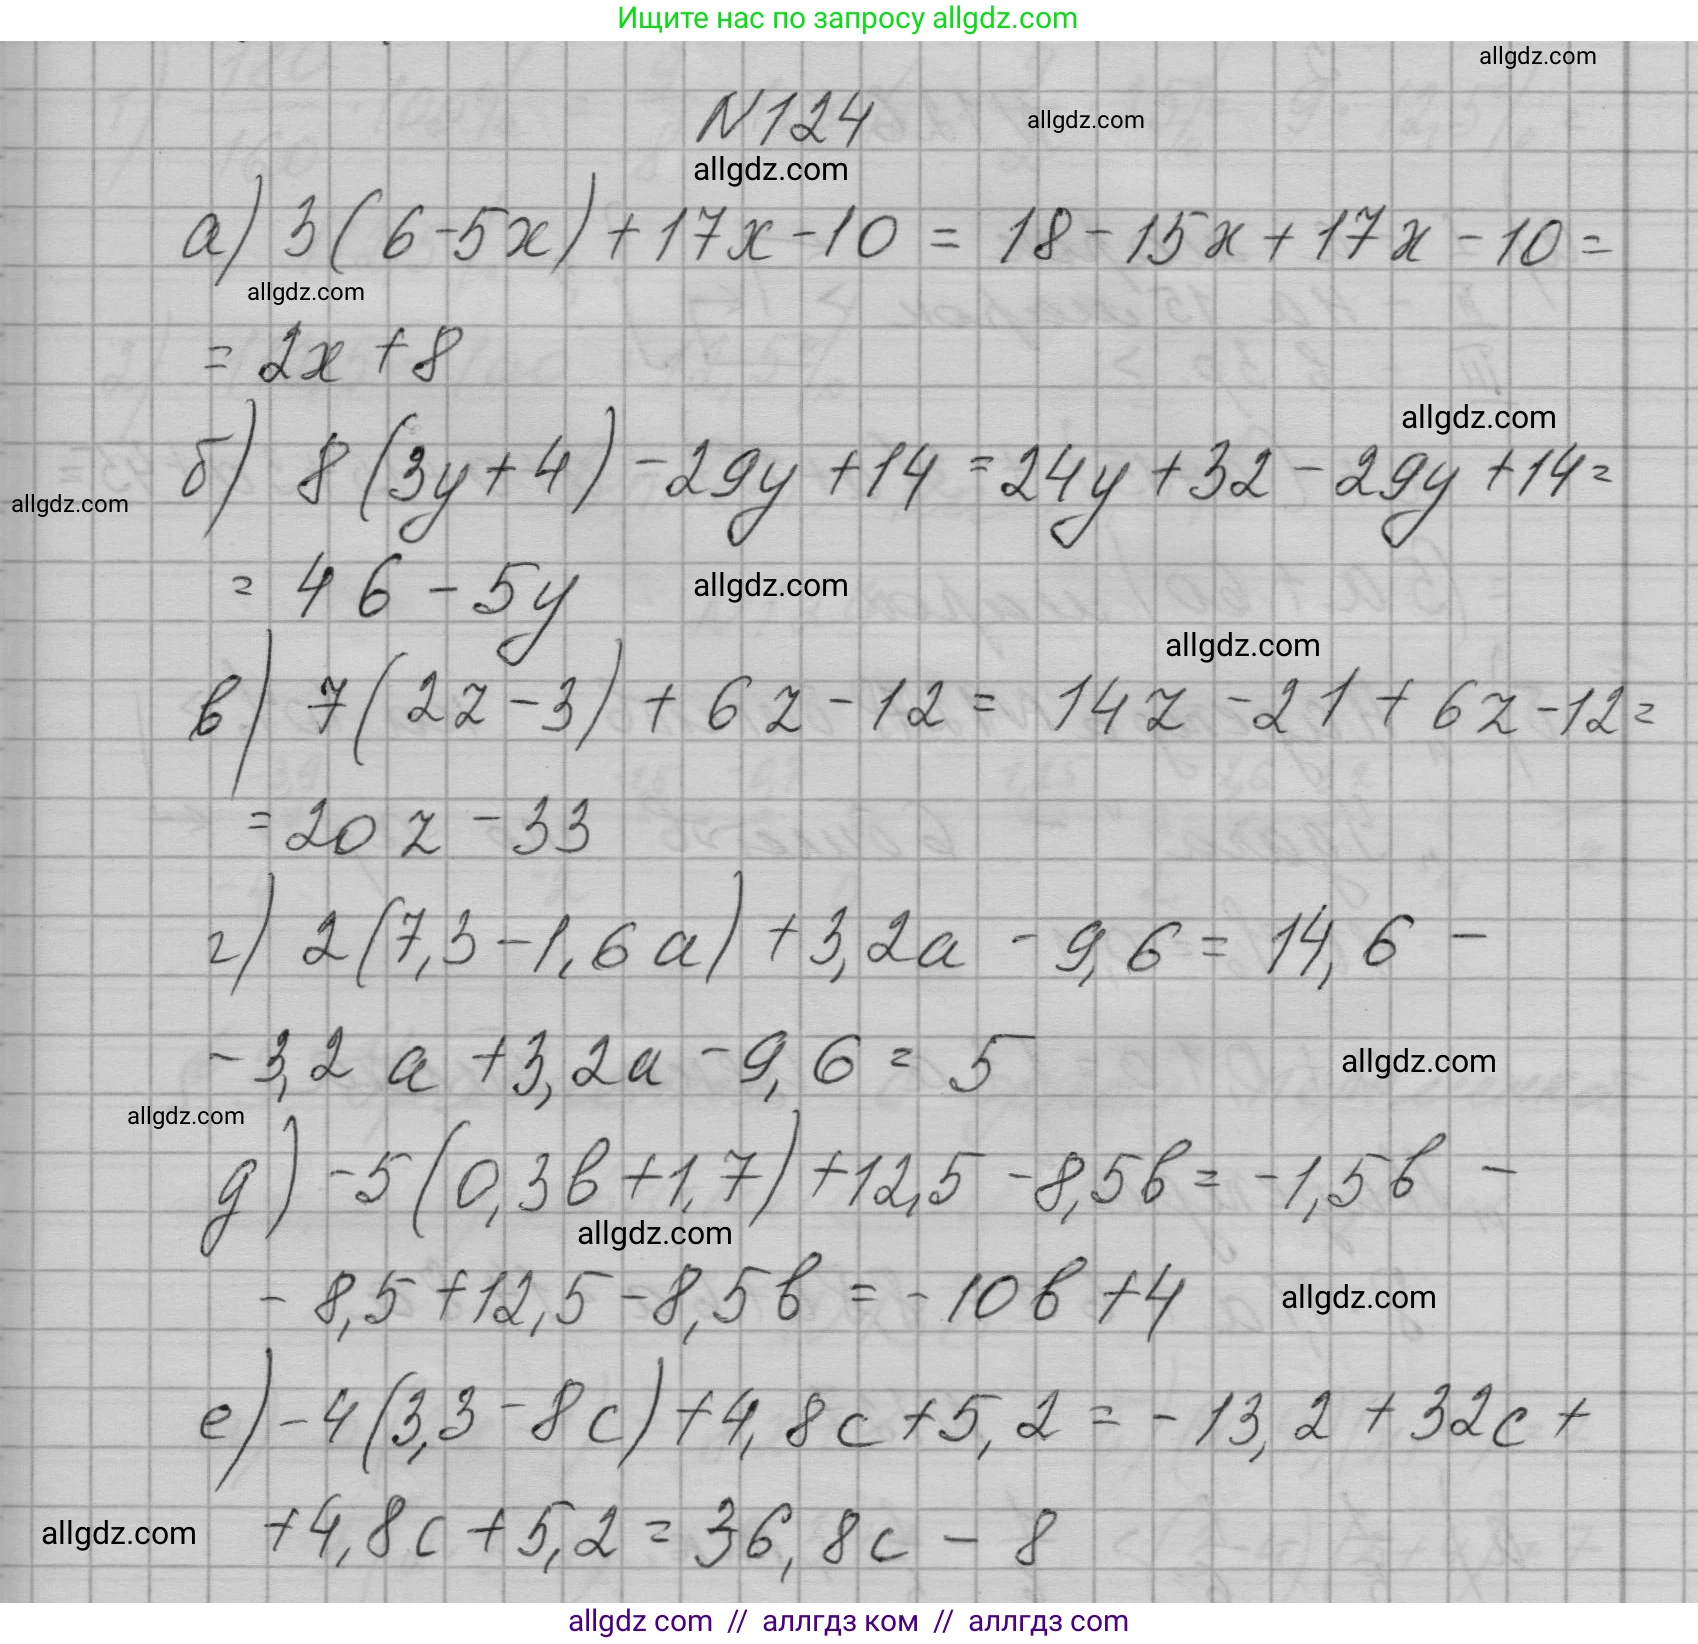 Ищите нас по запросу allgdz.com
allgdz.com
N124
allgdz.com
allgdz.com
а) 3(6-5x)+17x-10 = 18-15x+17x-10=
allgdz.com
= 2x+8
allgdz.com
б) 8(3y+4)-29y+14=24y+32-29y+14=
allgdz.com
= 46-5y
allgdz.com
allgdz.com
в) 7(2z-3)+6z-12= 14z-21+6z-12=
=20z-33
г) 2(7,3-1,6a)+3,2a-9,6=14,6-
-3,2a+3,2a-9,6=5
allgdz.com
allgdz.com
д) -5(0,3b+1,7)+12,5-8,5b=-1,5b-
allgdz.com
-8,5+12,5-8,5b=-10b+4
allgdz.com
е) -4(3,3-8c)+4,8c+5,2=-13,2+32c+
+4,8c+5,2=36,8c-8
allgdz.com
allgdz com // аллгдз ком // аллгдз com